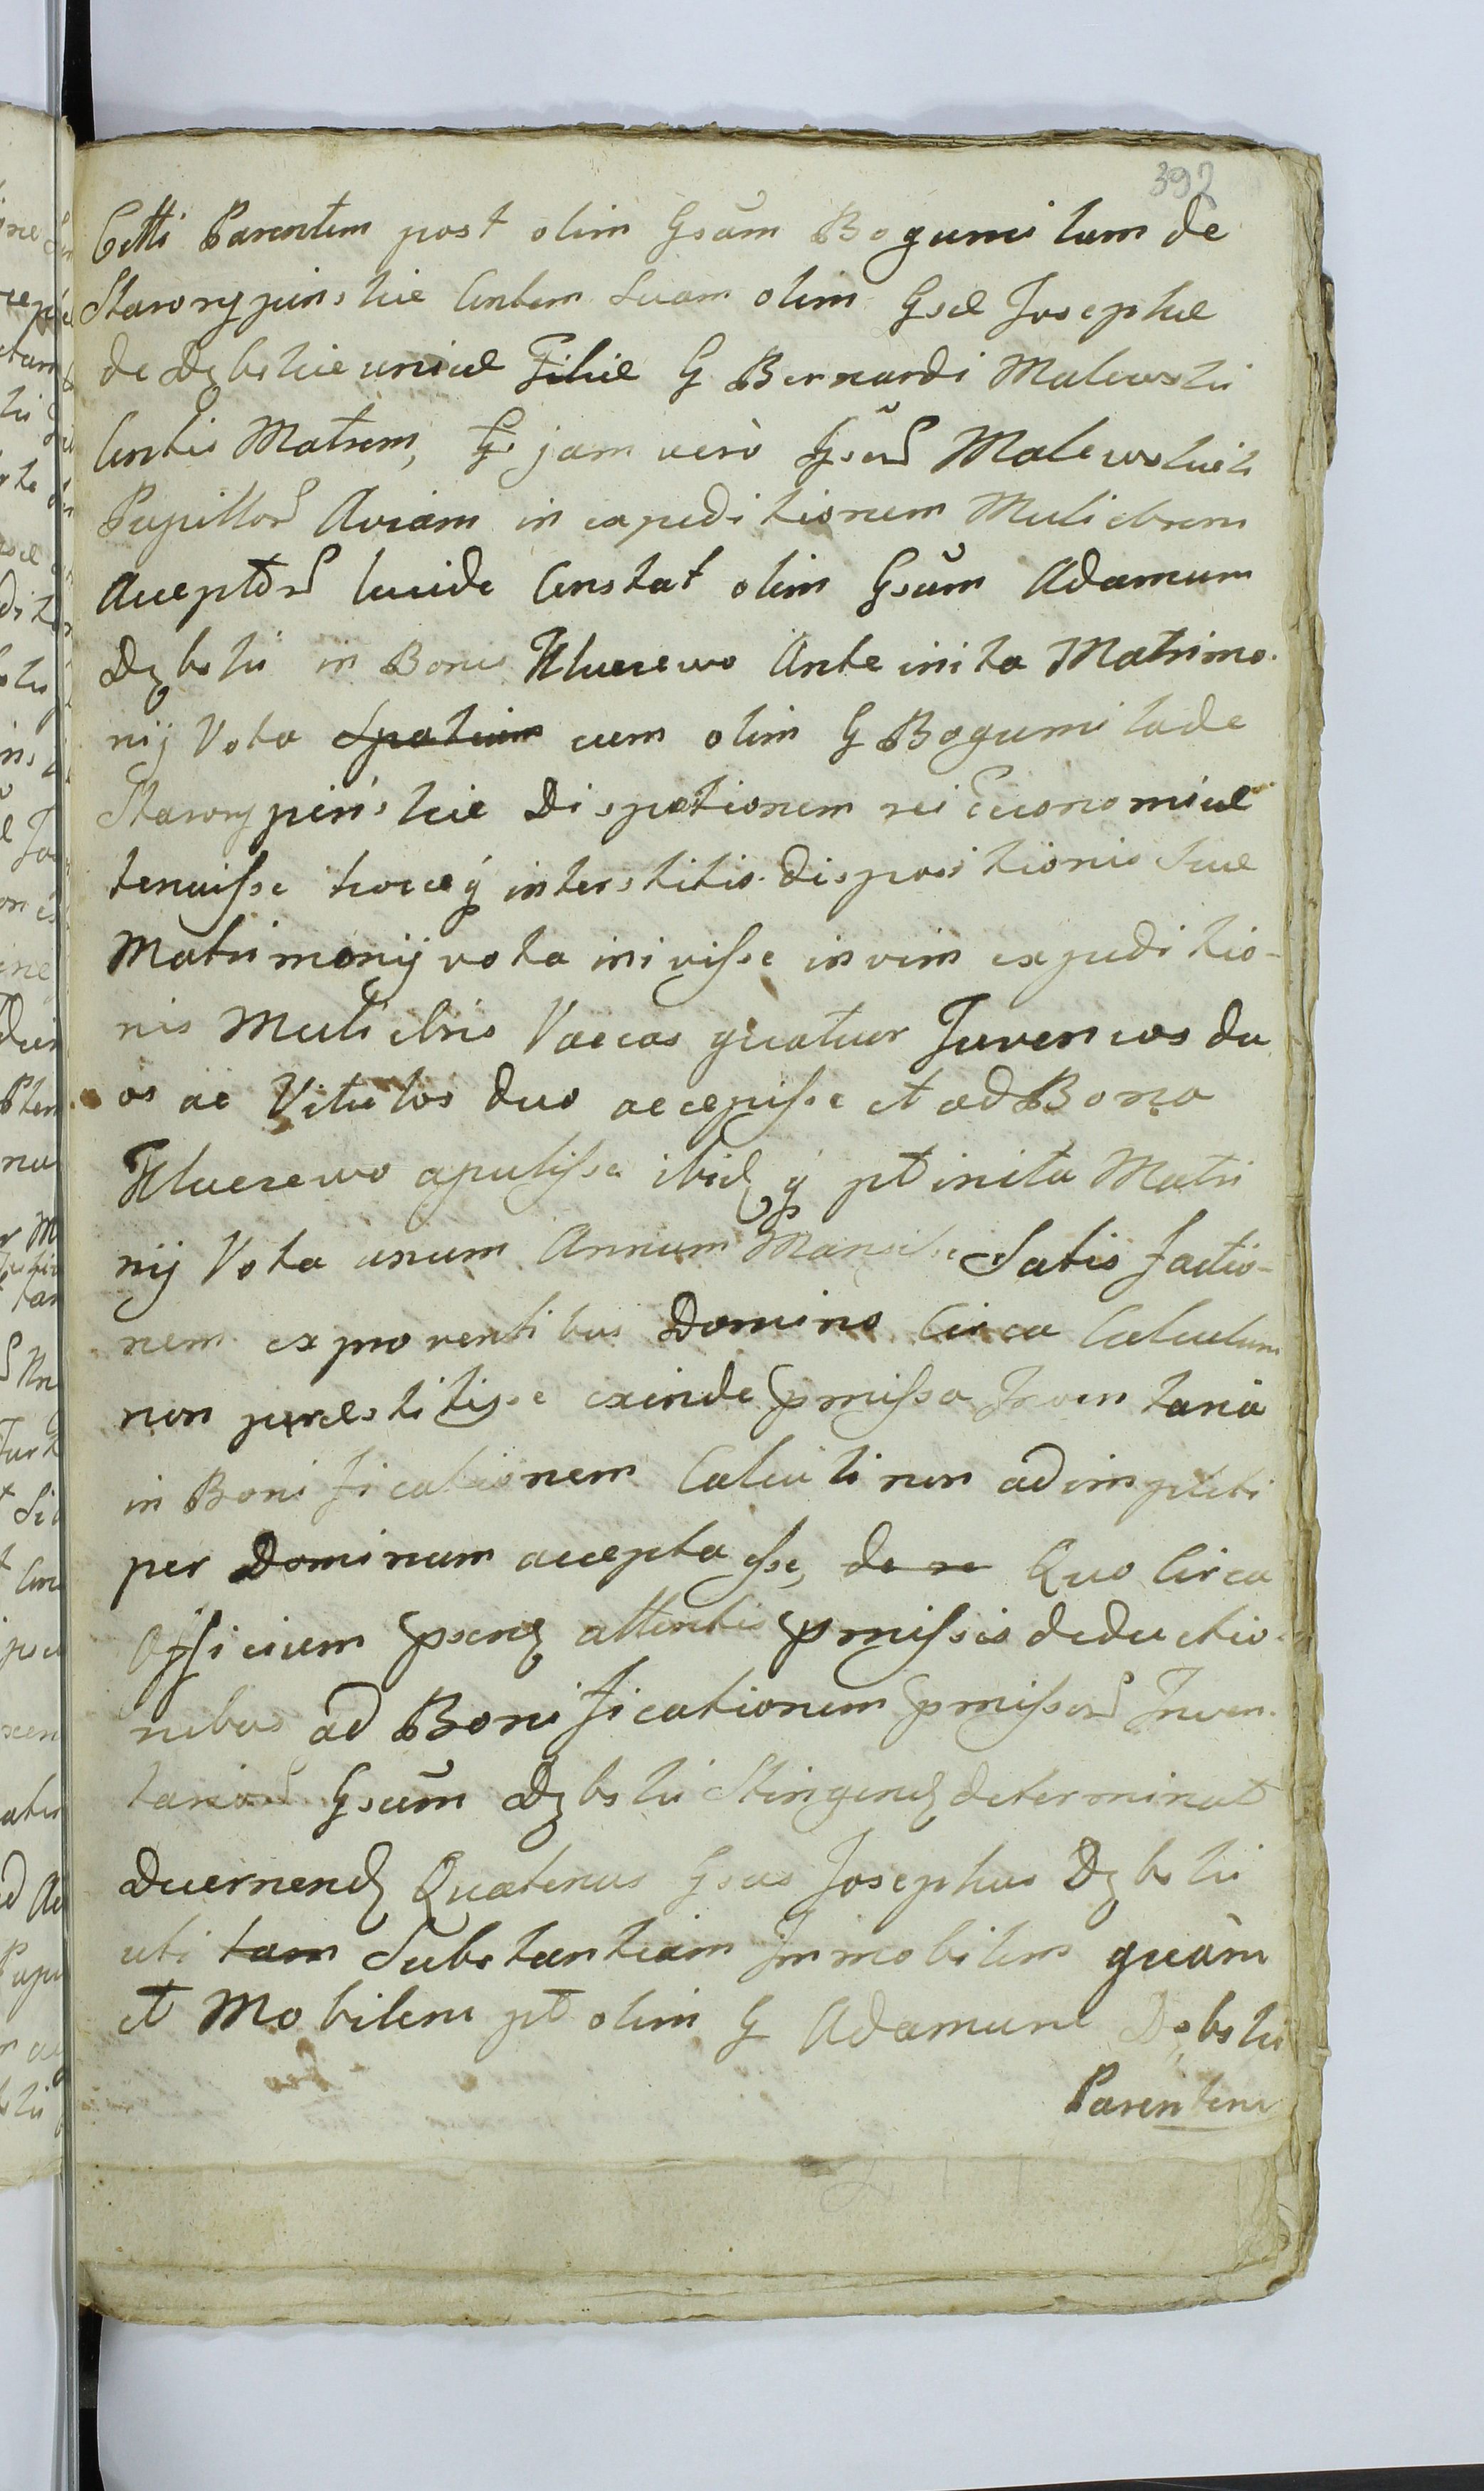 392
Cttti Parentem post olim Gsũm Bogumilam de
Starorypinskie Cntem Suam olim Gsæ Josephæ
de Dębskie unicæ Filiæ G Bernardi Malewski
Cntis Matrem, G̶s̶ jam verò Gsor̃ Malewskich
Pupillor̃ Aviam in expeditionem Muliebrem
Acceptor̃ lucide Constat olim Gsũm Adamum
Dębski in Bonis Kluczewo Ante inita Matrimo-
nij Vota S̶p̶a̶t̶i̶u̶m̶ cum olim G Bogumila de
Starorypin'skie Dispotionem rei Economicæ
tenuisse hocceq́ interstitio dispositionis Suæ
Matrimonij vota inivisse in vim expeditio-
nis Muliebris Vaccas quatuor Juvencos du
os ac Vitulos duo accepisse et ad Bona
Kluczewo apulisse ibidq́ pt̄ inita Matri
nij Vota unum Annum Mansisse Satis factio-
nem exmoventibus Domino Circa Calculum
non præstitisse exinde pmissa Inventaria
in Bonificationem Calculi non adimpleti
per Dominum accepta esse, d̶e̶ ̶r̶e̶ Quo Circa
Officium psens attentis pmissis deductio-
nibus ad Bonificationem pmissor̃ Inven-
tarior̃ Gsũm Dębski Stringend determinat
Decernend Quatenus Gsus Josephus Dębski
uti t̶a̶m̶ Substantiam Immobilem quàm
et Mobilem pt̄ olim G Adamum Dębski
Parentem